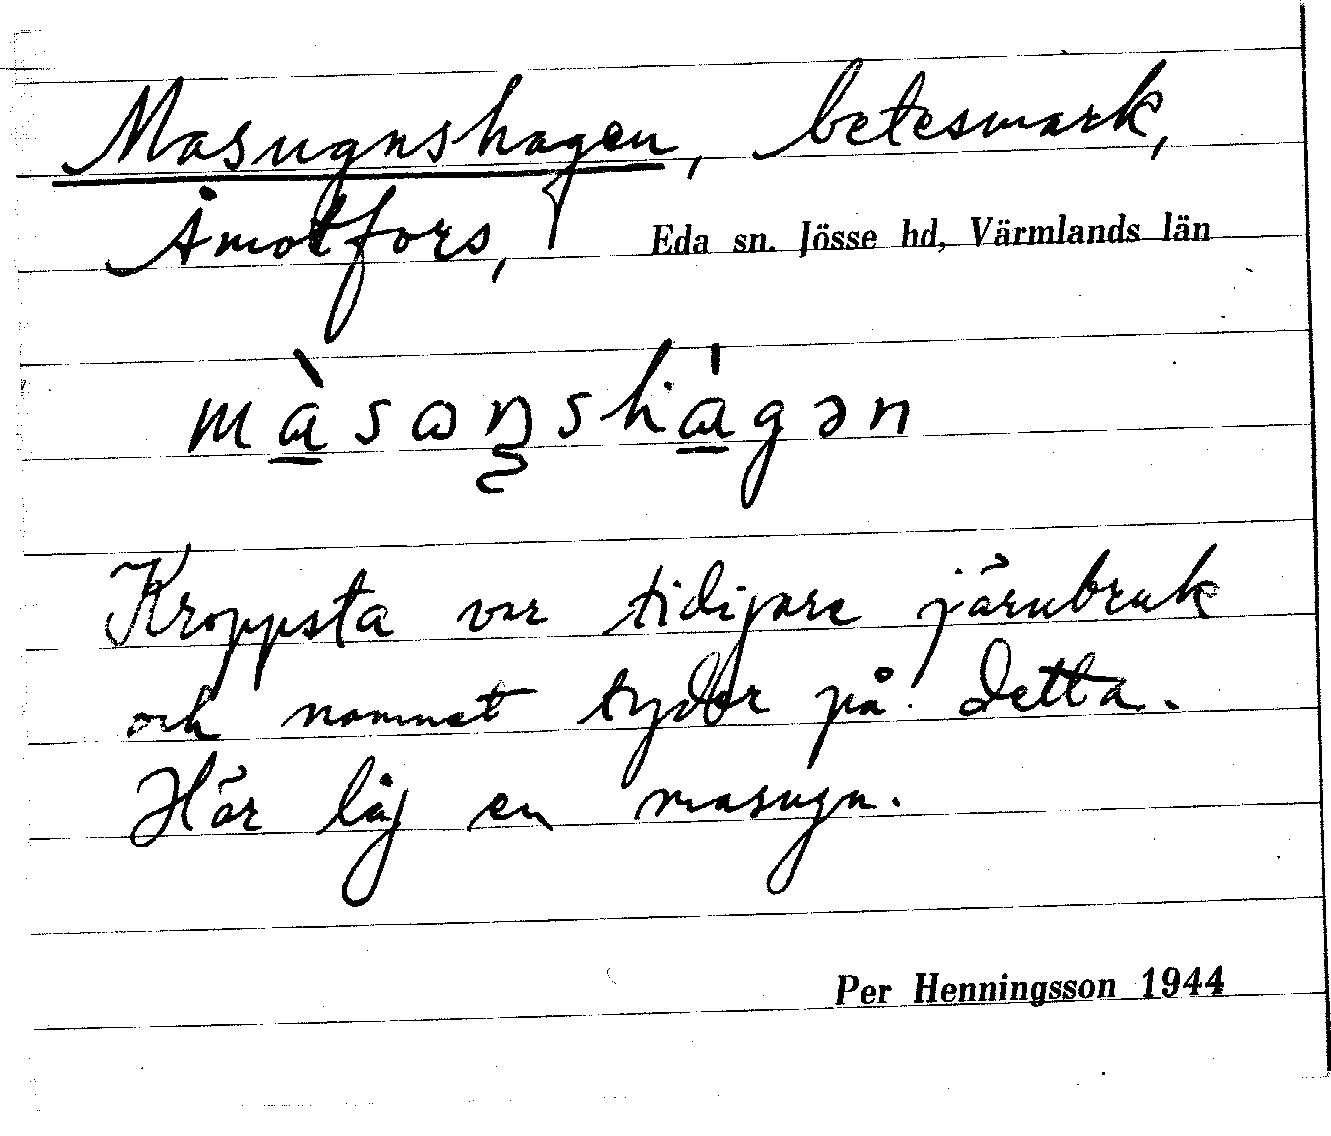 Masugnshagen, betesmark,
Åmotfors, Eda sn. Jösse hd, Värmlands län
Kroppsta var tidigare järnbruk
och namnet tyder på detta.
Här låg en masugn.
Per Henningsson 1944